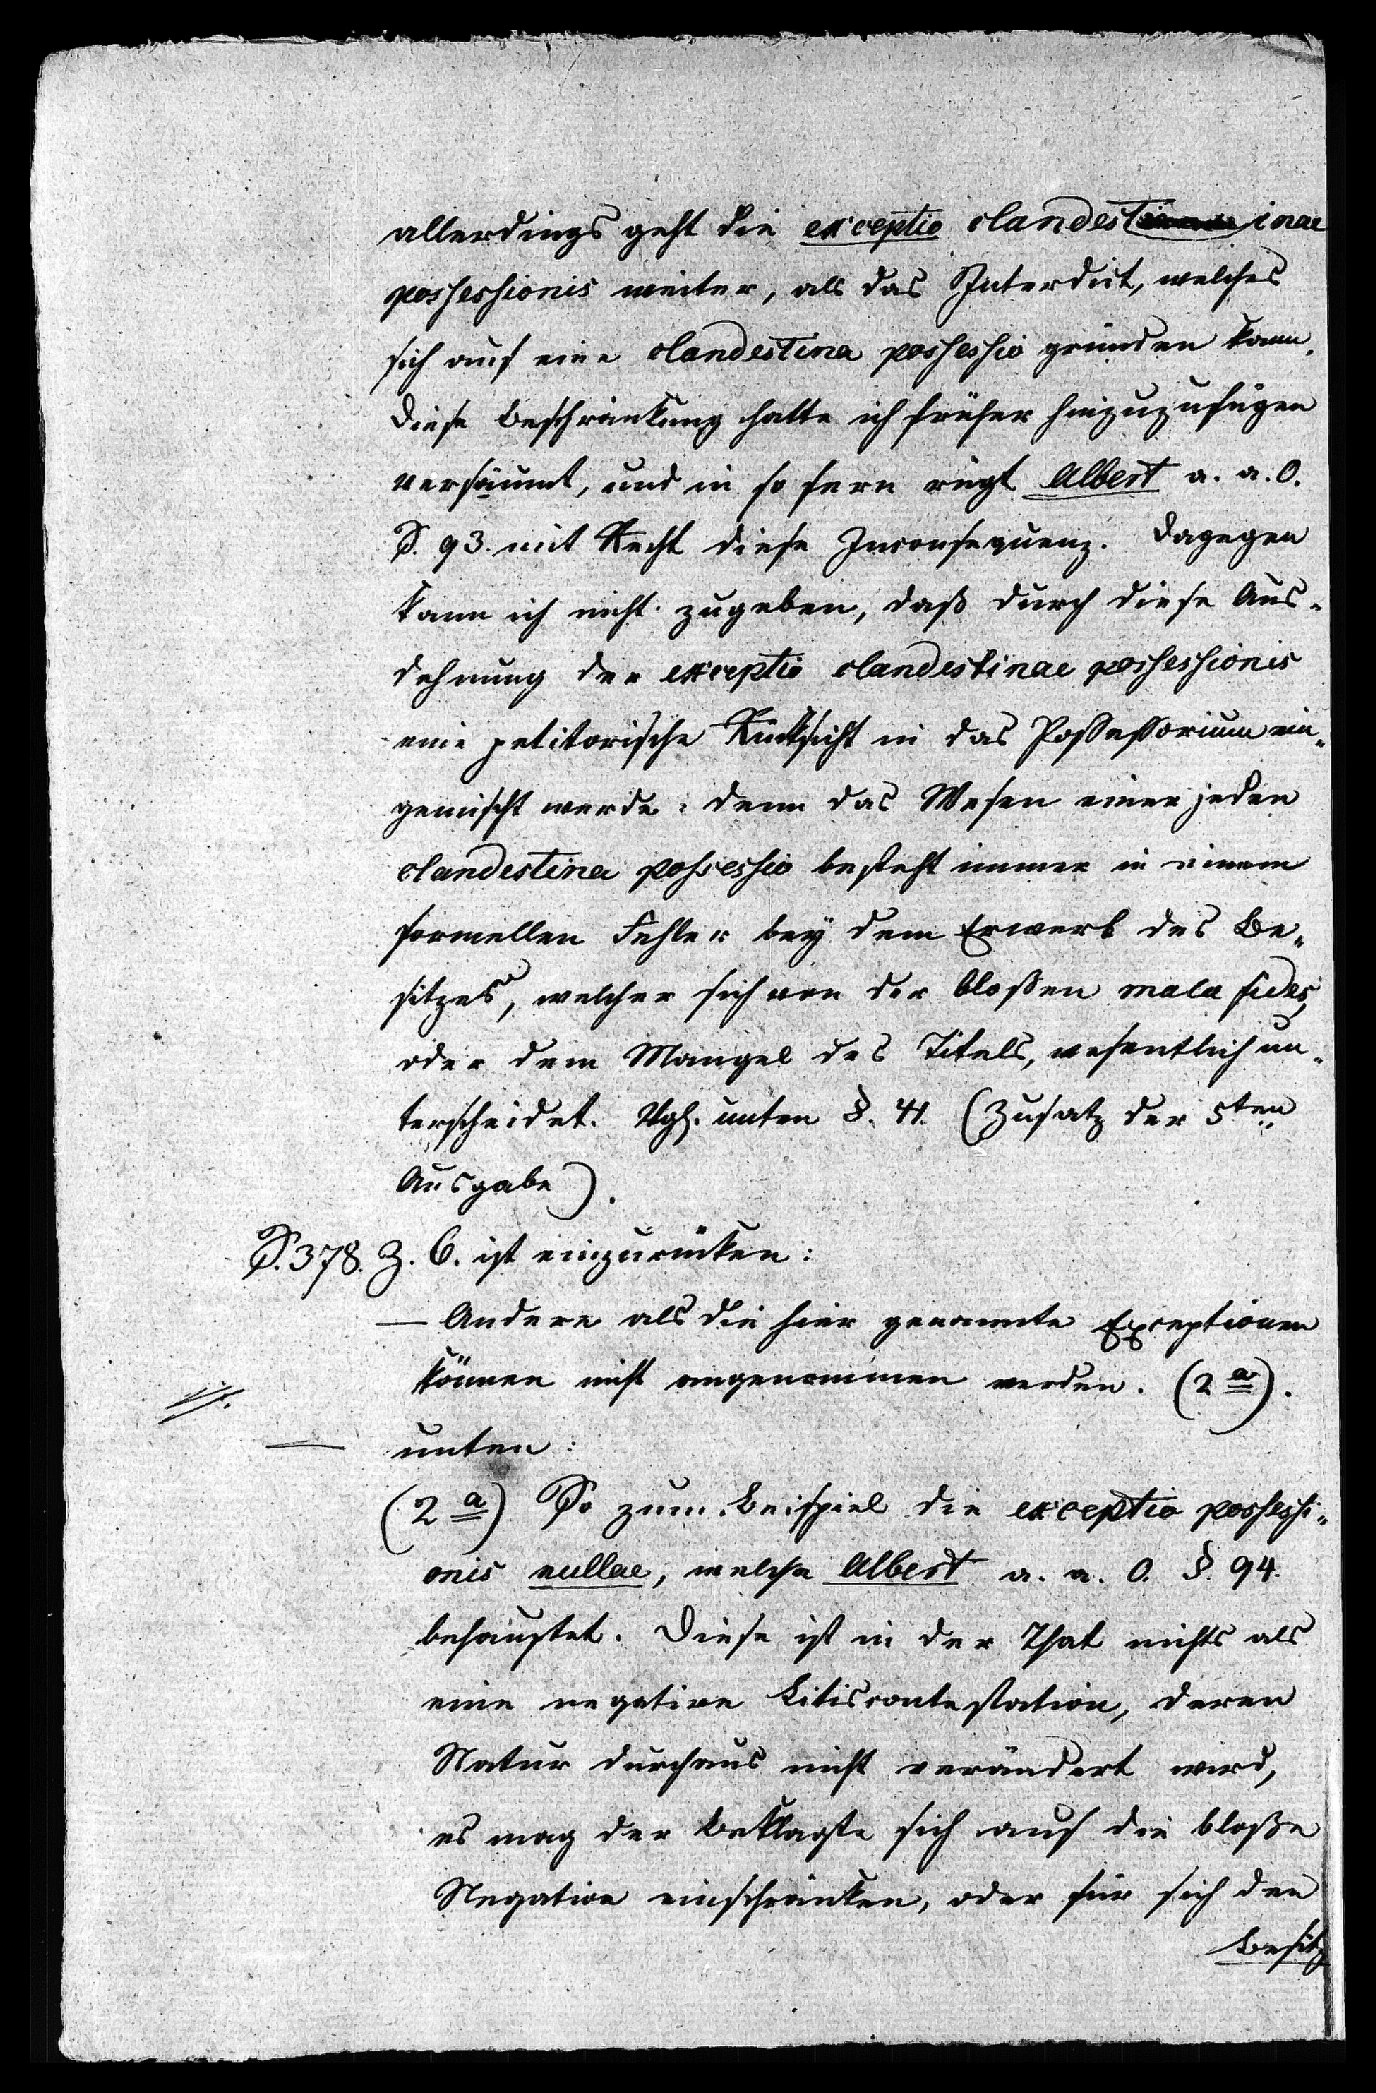 allerdings geht die exceptio clandestinae
possessionis weiter, als das Interdict, welches
sich auf eine clandestina possessio gründen kann.
Diese Beschränkung hatte ich früher hinzuzufügen
versäumt, und in so fern rügt Albert a. a. O.
S. 93. mit Recht diese Inconsequenz. Dagegen
kann ich nicht zugeben, daß durch diese Aus-
dehnung der exceptio clandestinae possessionis
eine petitorische Rücksicht in das Possessorium ein-
gemischt werde: denn das Wesen einer jeden
clandestina possessio besteht immer in einem
formellen Fehler bey dem Erwerb des Be-
sitzes, welcher sich von der bloßen mala fides,
oder dem Mangel des Titels, wesentlich un-
terscheidet. Vgl. unten §. 41. (Zusatz der 5ten
Ausgabe).
S. 378. Z. 6. ist einzurücken:
— Andere als die hier genannte Exceptionen
können nicht angenommen werden. (2 a).
— unten:
(2 a) So zum Beispiel die exceptio possessi-
onis nullae, welche Albert a. a. O. §. 94.
behauptet. Diese ist in der That nichts als
eine negative Litiscontestation, deren
Natur durchaus nicht verändert wird,
es mag der Beklagte sich auf die bloße
Negation einschränken, oder für sich den
Besitz